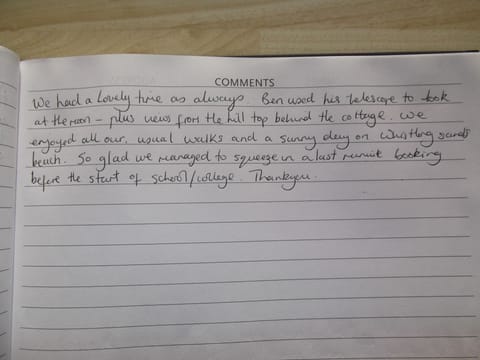 COMMENTS
We had a lovely time as always. Ben used his telescope to look
at the moon – plus views from the hill top behind the cottage. We
enjoyed all our usual walks and a sunny day on Whistling sands
beach. So glad we managed to squeeze in a last minute booking
before the start of school/college. Thankyou.